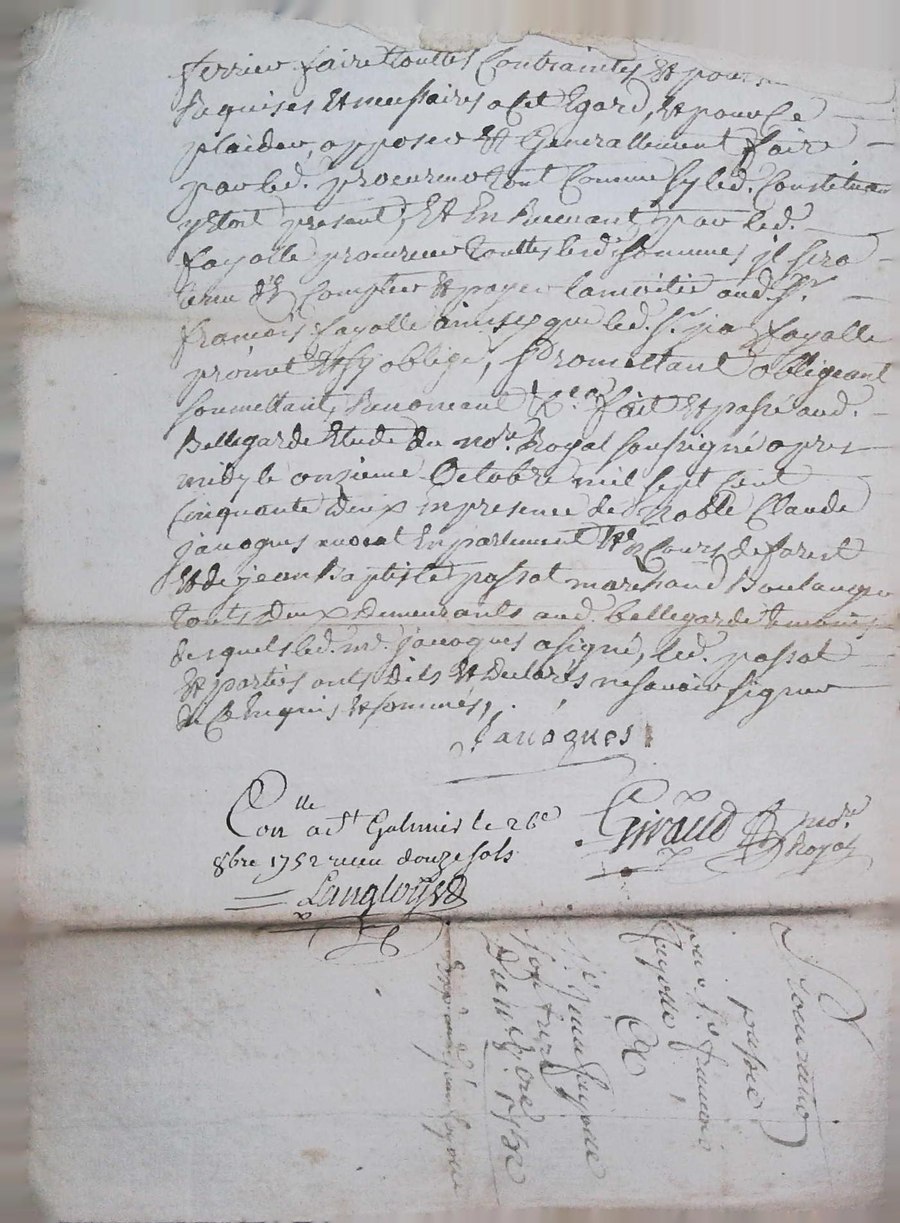 ferrieu faire touttes Contraintes Et pour
Requises Et necessaires a Cet Egard, Et pour Ce
plaider, opposer Et Generallement faire
par led. procureur tout Comme sy led. Constituant
y Etoit present, Et En Recevant par led.
fayolle procureur touttes lesd. sommes, jl sera
tenu d'En Compter Et payer la moitié aud. Sr.
francois fayolle ainsy que led. Sr. fayolle
promet Et sy oblige, promettant obligeant
soumettant, Renoncant &a. fait Et passé aud.
Bellegarde Etude du nore. Royal soussigné apres
midy le onzieme Octobre mil sept Cent
Cinquante deux en presence de Noble Claude
javogues avocat En parlement Et Cours de forest
Et de jean Baptiste passot marchand Boulanger
touts deux demeurants aud. bellegarde temoins
desquels led. me. javogues a signé, led. passot
Et parties onts dits Et declarés ne scavoir signer
de Ce Enquis Et sommés,
Javogues
Conlle a St Galmier le 26e
8bre 1752 receu douze sols
Langloys
Giraud nore.
Royal
Procuration
passée
par Sr. francois
fayolle
A
Sr. jean fayolle
son frere
Du 11 8bre 1752